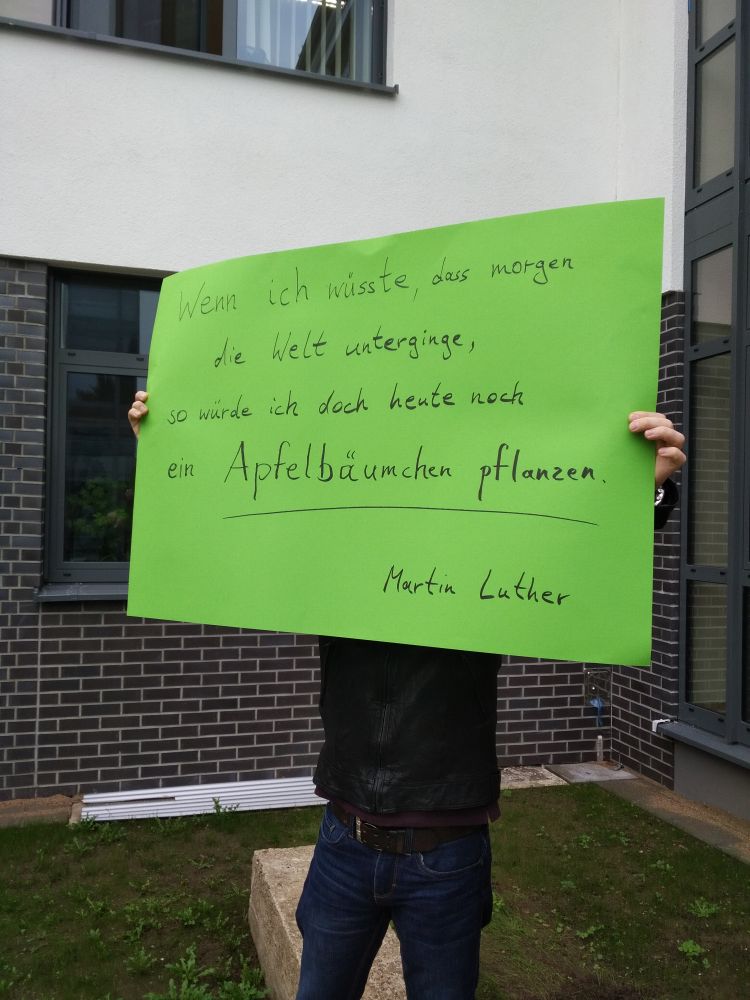 Wenn ich wüsste, dass morgen
die Welt unterginge,
so würde ich doch heute noch
ein Apfelbäumchen pflanzen.
Martin Luther